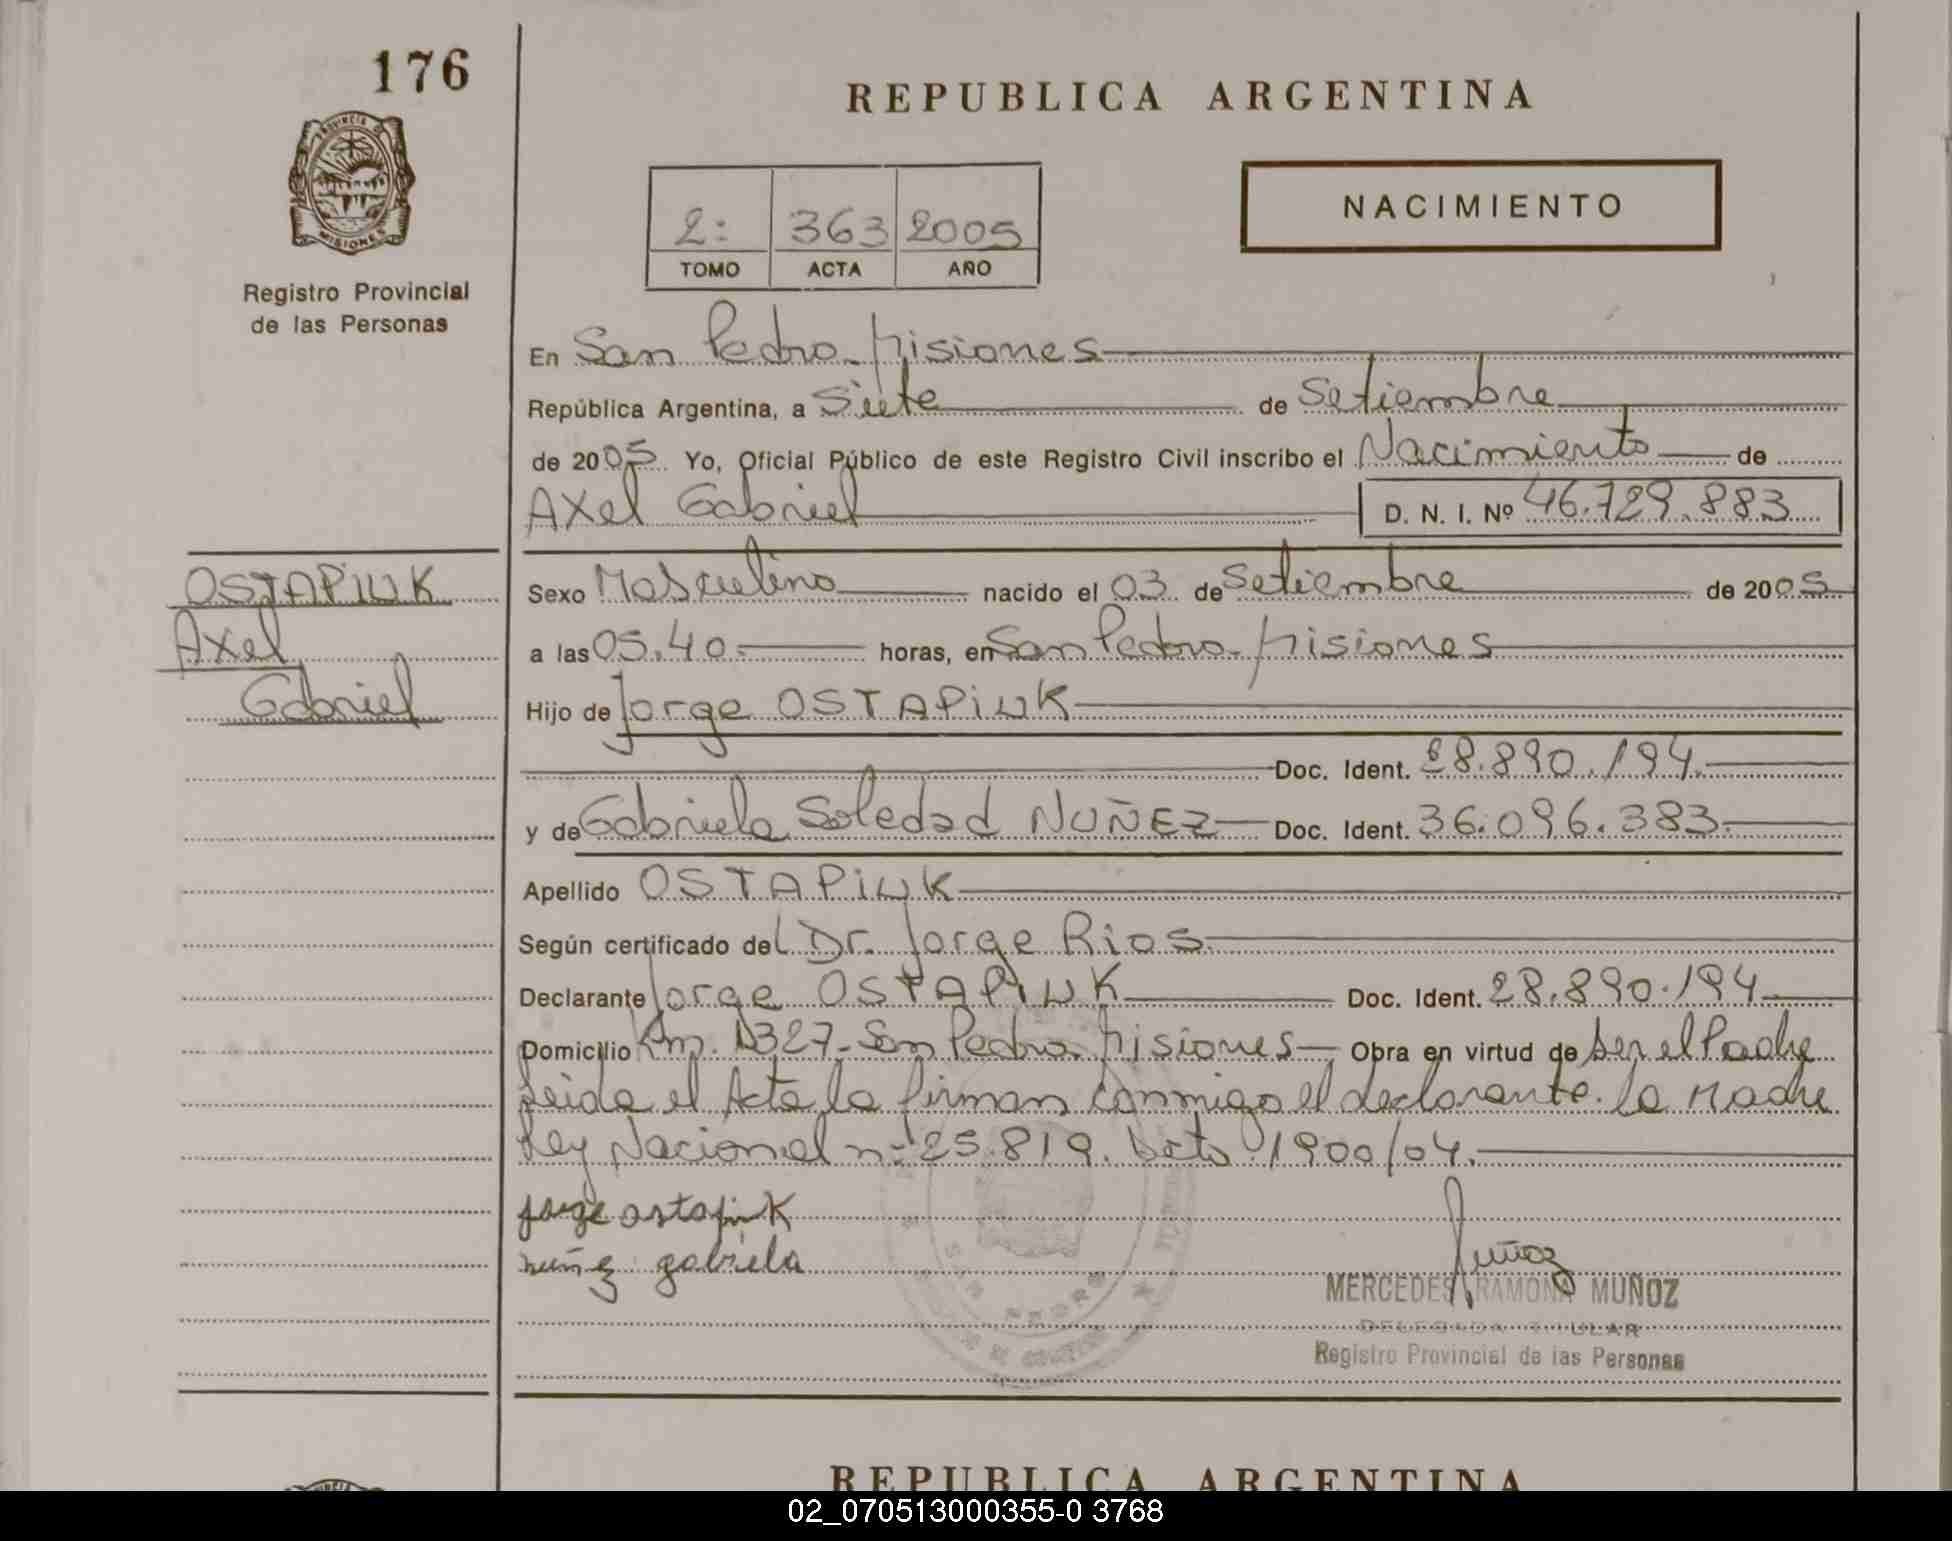 176
PROVINCIA DE
MISIONES
Registro Provincial
de las Personas
REPUBLICA ARGENTINA
2: 363 2005
TOMO ACTA AÑO
NACIMIENTO
En San Pedro. Misiones
República Argentina, a Siete de Setiembre
de 2005 Yo, Oficial Público de este Registro Civil inscribo el Nacimiento de
Axel Gabriel D. N. I. Nº 46.729.883
OSTAPIUK
Axel
Gabriel
Sexo Masculino nacido el 03 de Setiembre de 2005
a las 05.40.- horas, en San Pedro. Misiones
Hijo de Jorge OSTAPIUK
Doc. Ident. 28.890.194.
y de Gabriela Soledad NUÑEZ Doc. Ident. 36.096.383.
Apellido OSTAPIUK
Según certificado del Dr. Jorge Rios.
Declarante Jorge OSTAPIUK Doc. Ident. 28.890.194
Domicilio Km. 1327- San Pedro. Misiones Obra en virtud de ser el Padre
Leida el Acta la firman conmigo el declarante. la Madre
Ley Nacional nº 25.819. Dcto. 1900/04.
jorge ostapiuk
nuñez gabriela
SAN PEDRO
Muñoz
MERCEDES RAMONA MUÑOZ
DELEGADA TITULAR
Registro Provincial de las Personas
REPUBLICA ARGENTINA
02_070513000355-0 3768